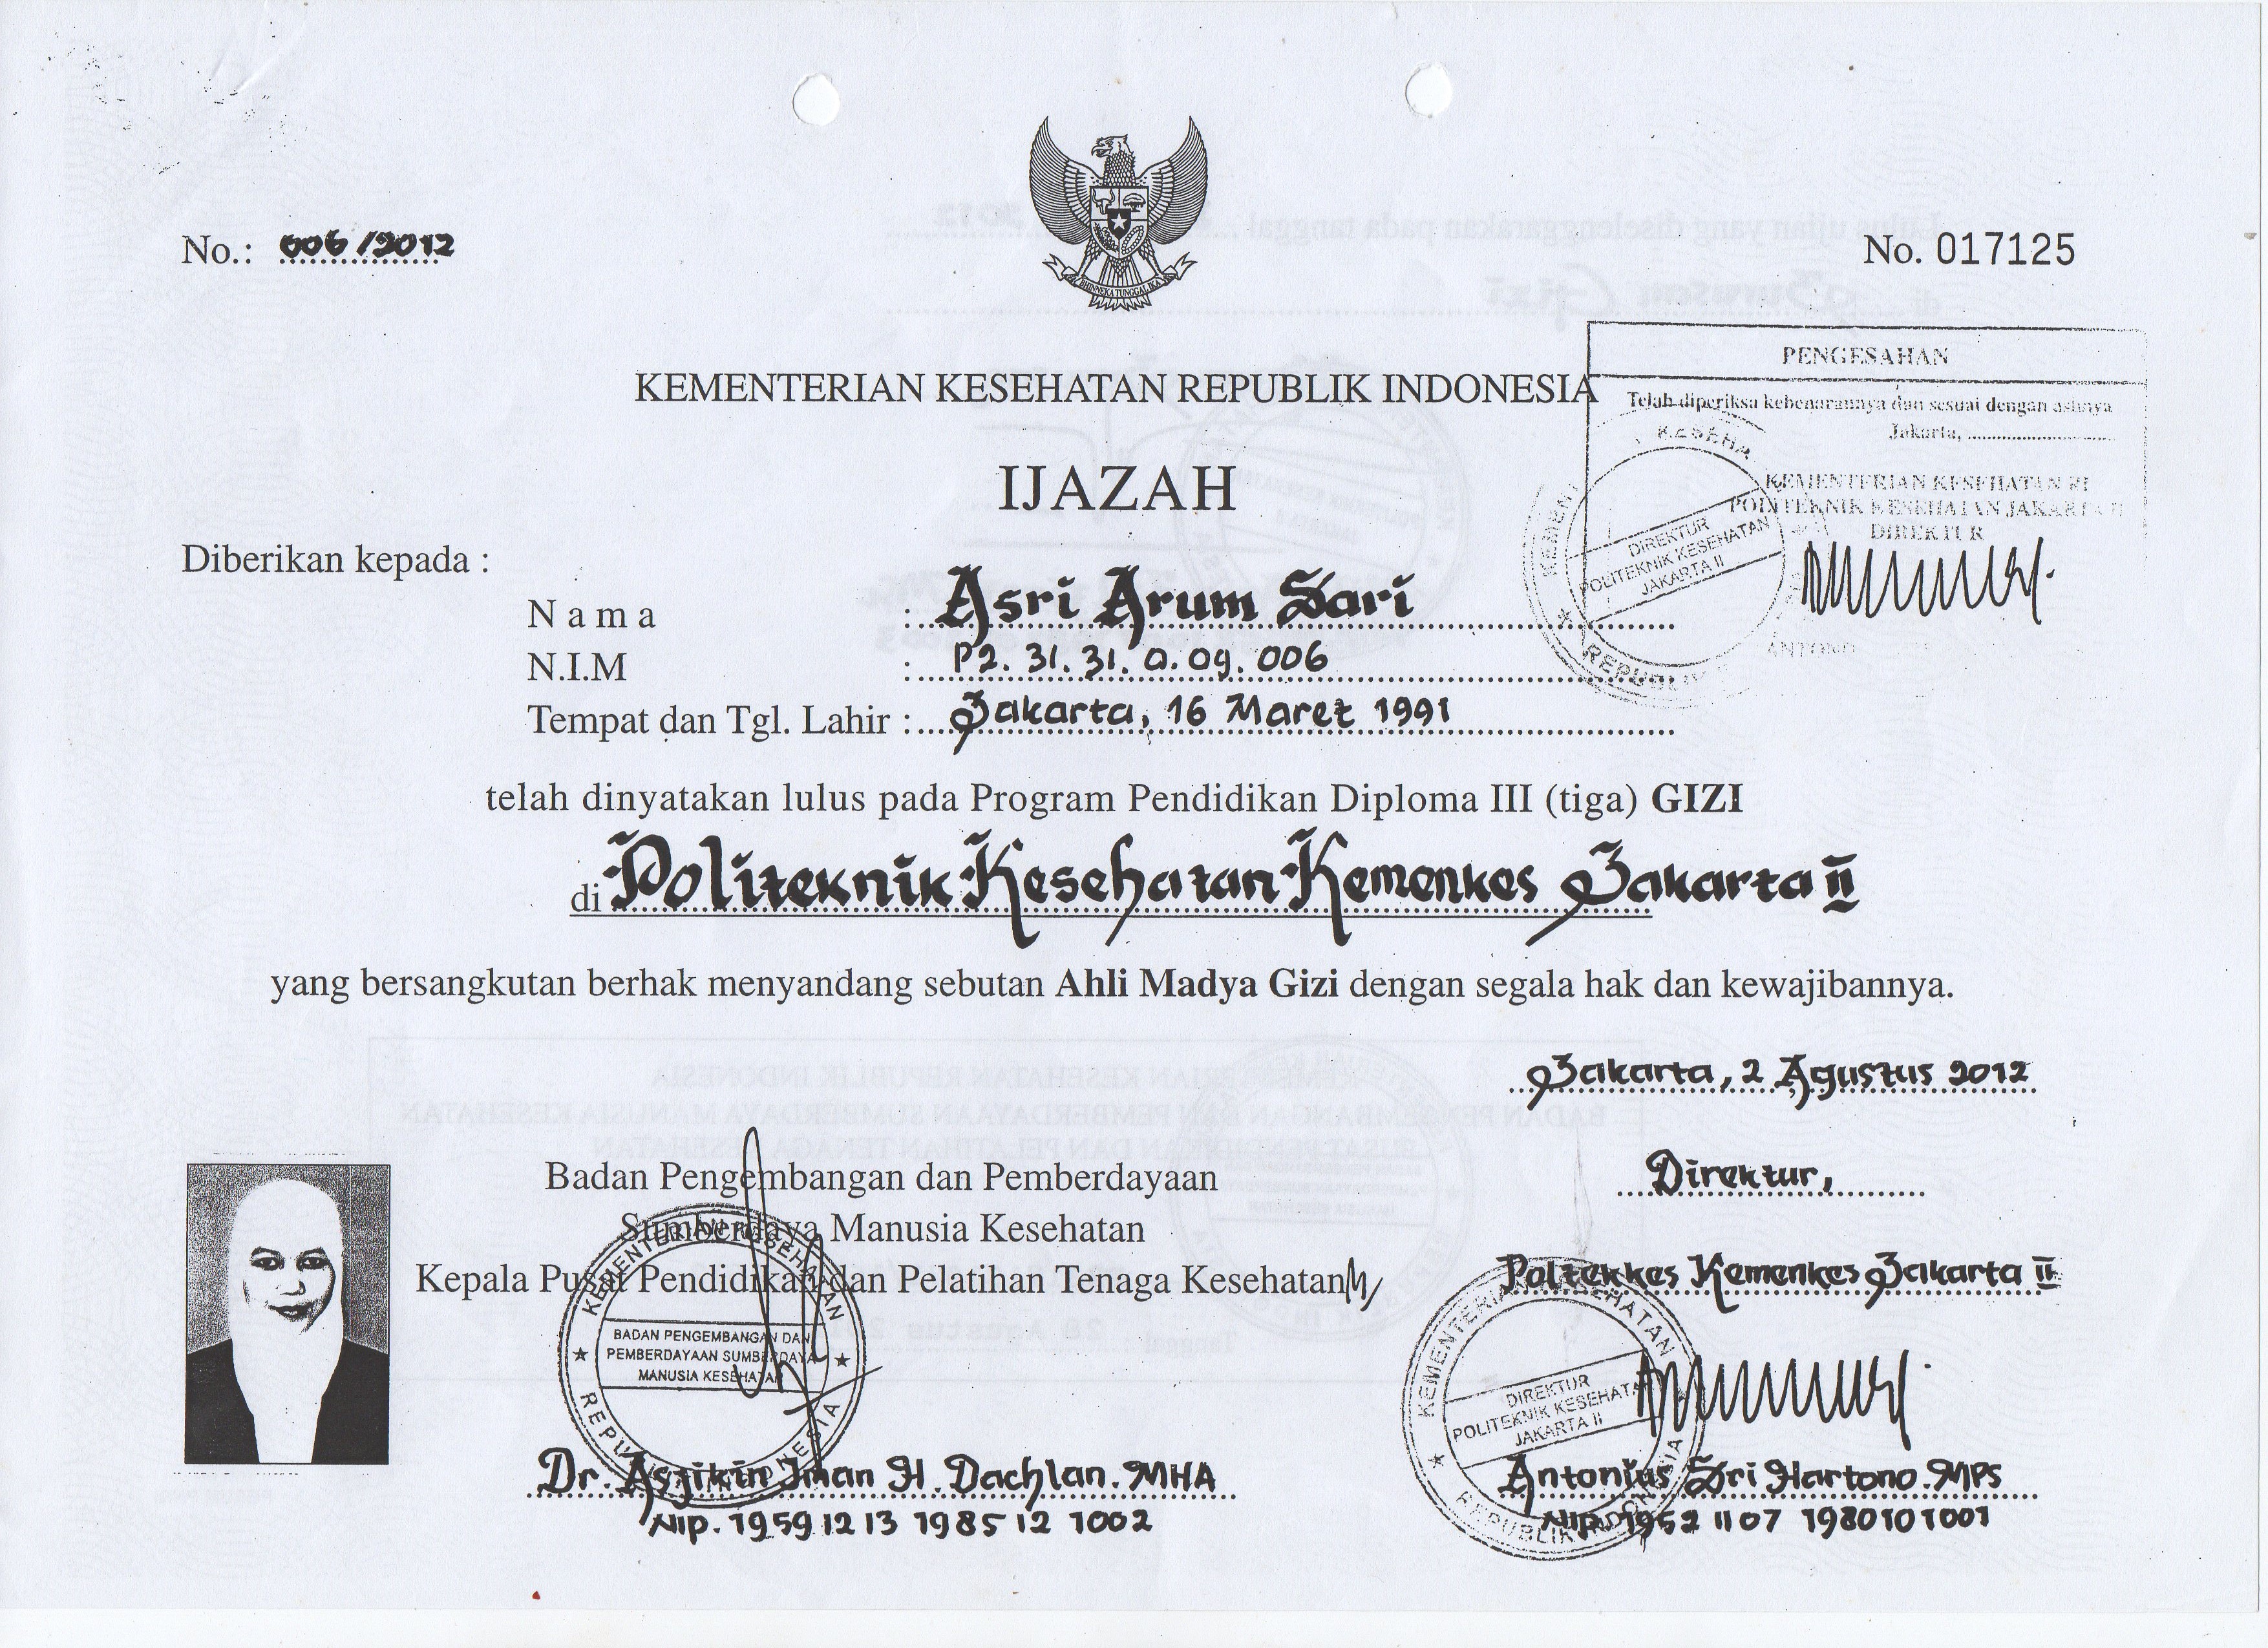 No.: 006/2012
BHINNEKA TUNGGAL IKA
No. 017125
KEMENTERIAN KESEHATAN REPUBLIK INDONESIA
PENGESAHAN
Telah diperiksa kebenarannya dan sesuai dengan aslinya
Jakarta, ........................
KEMENTERIAN KESEHATAN RI
POLITEKNIK KESEHATAN JAKARTA II
DIREKTUR
DIREKTUR
POLITEKNIK KESEHATAN
JAKARTA II
ANTONIU
IJAZAH
Diberikan kepada :
Nama : Asri Arum Sari
N.I.M : P2. 31. 31. 0. 09. 006
Tempat dan Tgl. Lahir : Jakarta, 16 Maret 1991
telah dinyatakan lulus pada Program Pendidikan Diploma III (tiga) GIZI
di Politeknik Kesehatan Kemenkes Jakarta II
yang bersangkutan berhak menyandang sebutan Ahli Madya Gizi dengan segala hak dan kewajibannya.
Jakarta, 2 Agustus 2012
Badan Pengembangan dan Pemberdayaan
Sumberdaya Manusia Kesehatan
Kepala Pusat Pendidikan dan Pelatihan Tenaga Kesehatan
KEMENTERIAN KESEHATAN
BADAN PENGEMBANGAN DAN
PEMBERDAYAAN SUMBERDAYA
MANUSIA KESEHATAN
REPUBLIK INDONESIA
Dr. Asjikin Iman H. Dachlan. MHA
Nip. 19591213 198512 1002
Direktur,
Poltekkes Kemenkes Jakarta II
KEMENTERIAN KESEHATAN
DIREKTUR
POLITEKNIK KESEHATAN
JAKARTA II
REPUBLIK INDONESIA
Antonius Sri Hartono. MPS
Nip. 1952 1107 1980101001